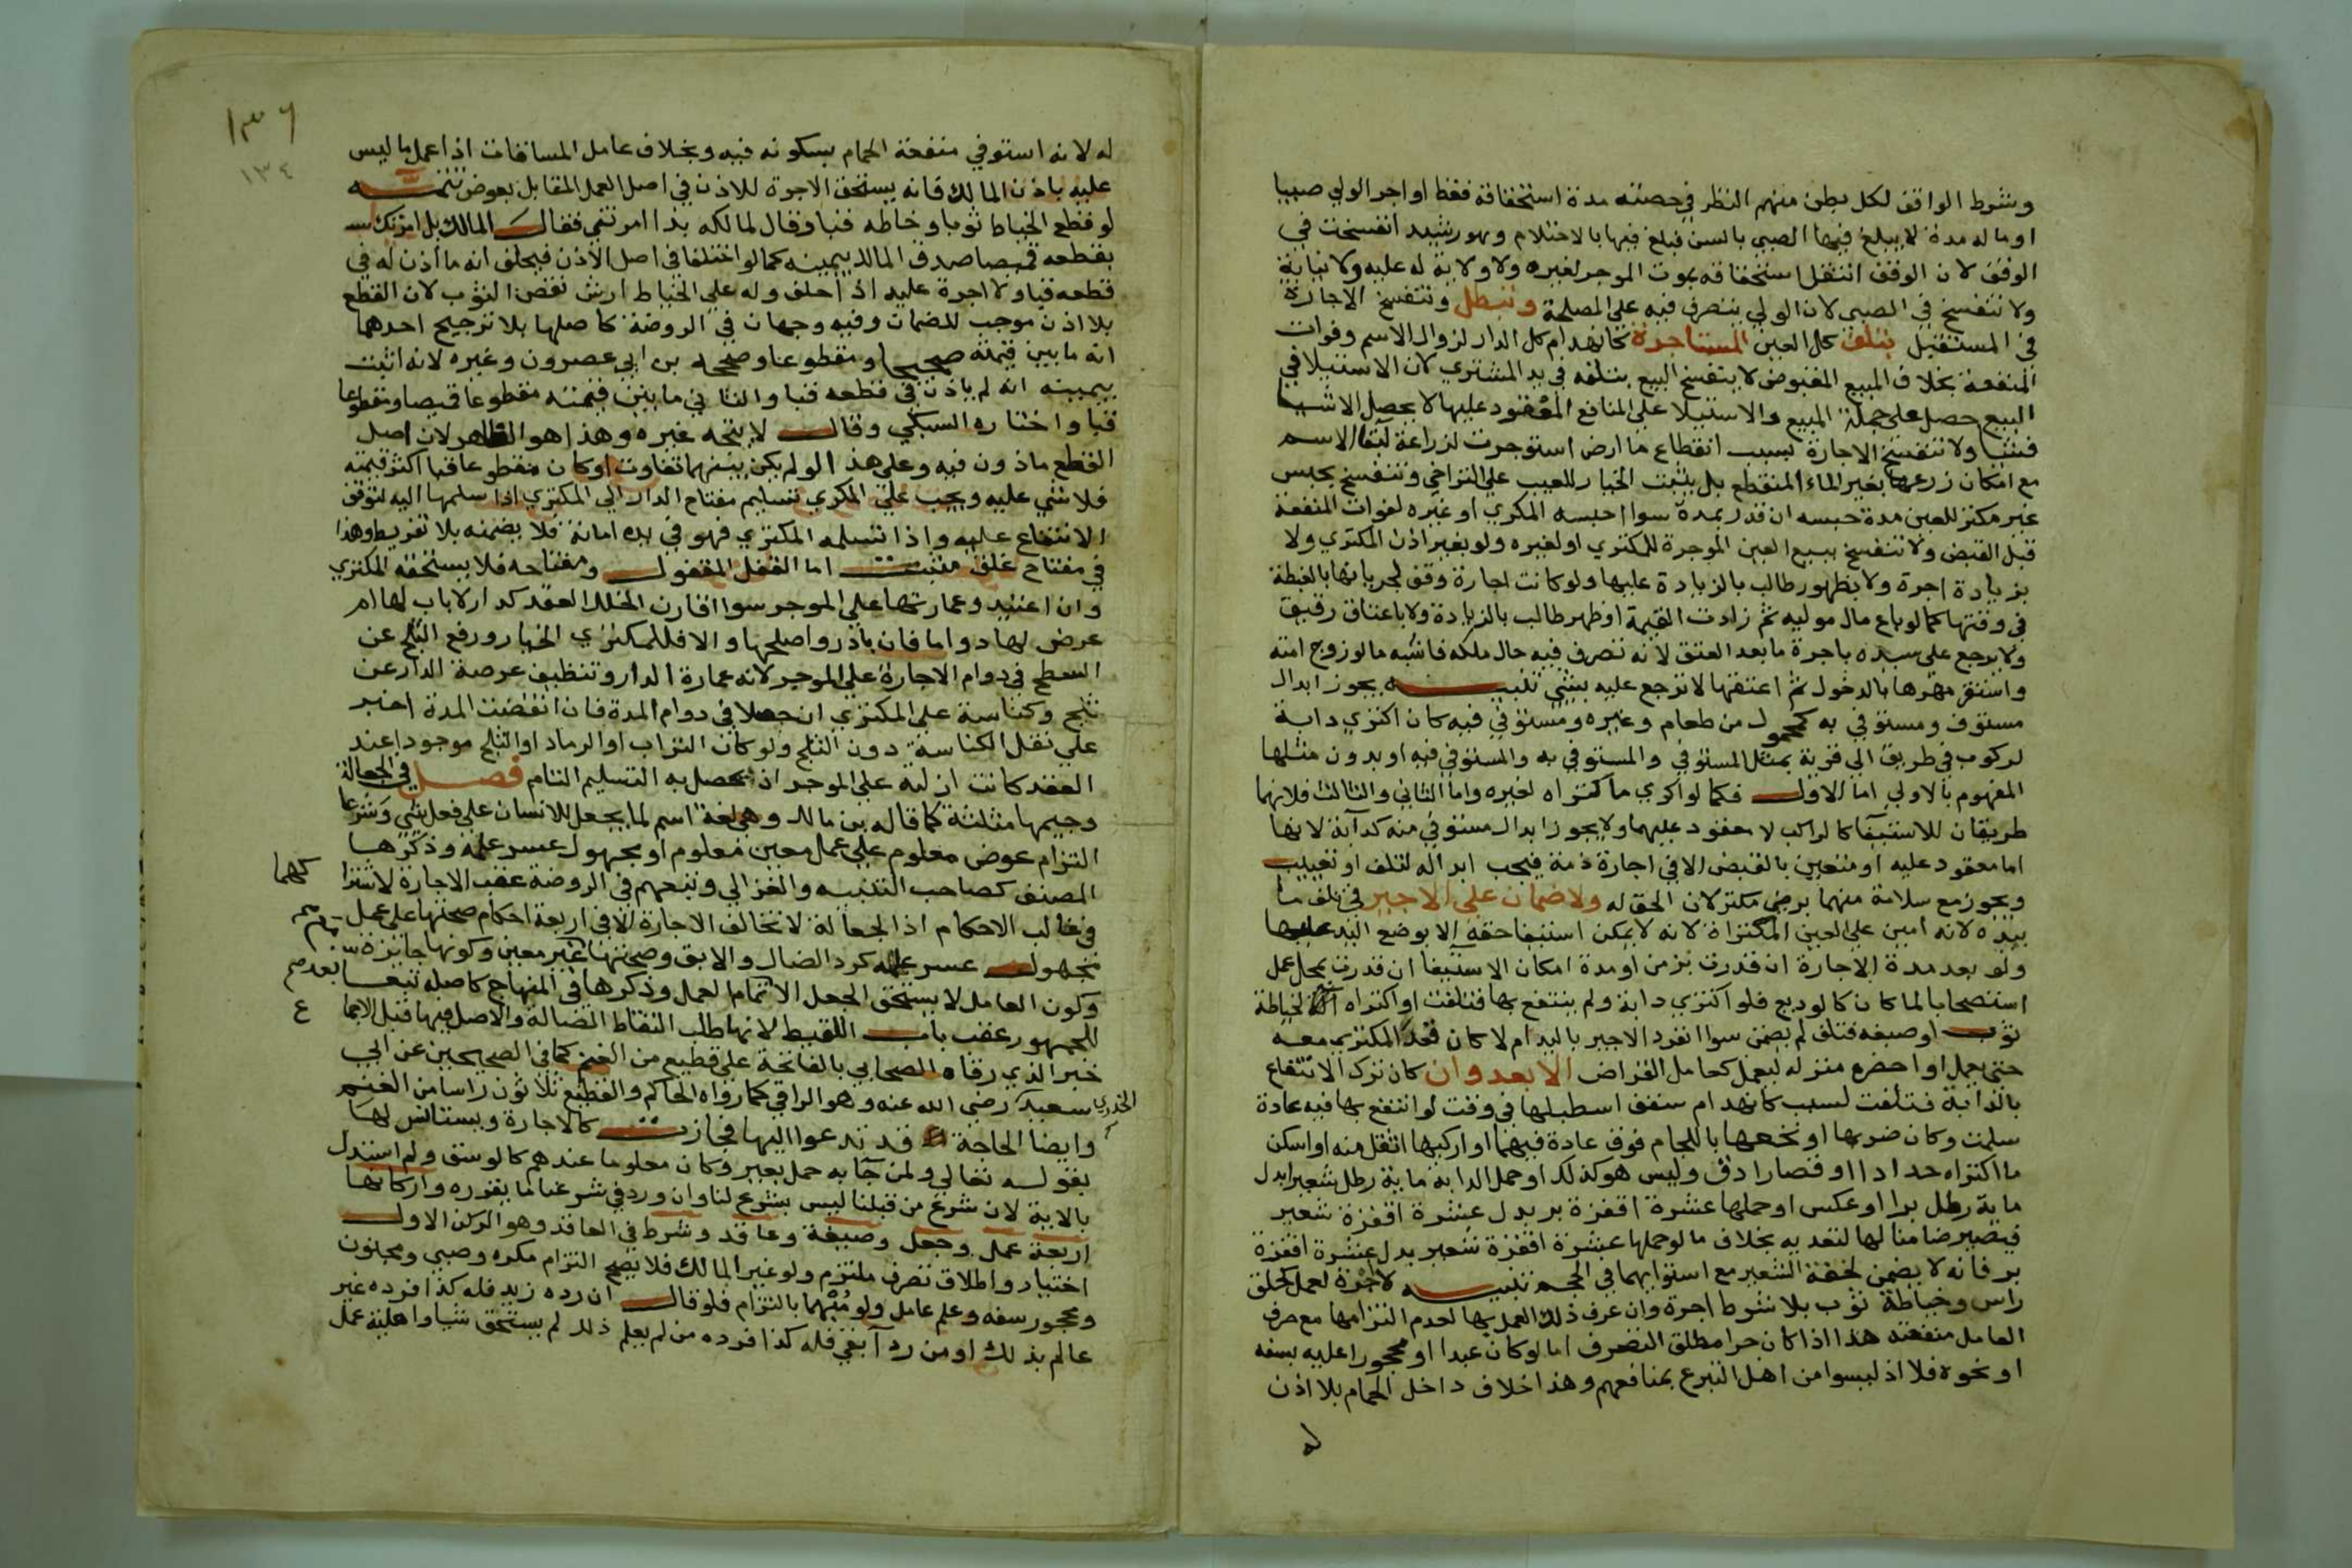 وشرط الواقف لكل بطن منهم النظر في حصته مدة استحقاقه فقط او اجر الولي صبيا
او ماله مدة لا يبلغ فيها الصبي بالسن فبلغ فيها بالاحتلام وهو رشيد انفسخت في
الوقف لان الوقف انتقل استحقاقه بموت الموجر لغيره ولا ولاية له عليه ولا نيابة
ولا تنفسخ في الصبي لان الولي يتصرف فيه على المصلحة وتبطل وتنفسخ الاجارة
في المستقبل بتلف كل العين المستاجرة كانهدام كل الدار لزوال الاسم وفوات
المنفعة بخلاف المبيع المقبوض لا ينفسخ البيع بتلفه في يد المشتري لان الاستيلا في
البيع حصل على جملة المبيع والاستيلا على المنافع المعقود عليها لا يحصل الا شيا
فشيا ولا تنفسخ الاجارة بسبب انقطاع ما ارض استوجرت لزراعة لبقا الاسم
مع امكان زرعها بغير الماء المنقطع بل يثبت الخيار للعيب على التراخي وتنفسخ بحبس
غير مكتر للعين مدة حبسه ان قدر بمدة سوا احبسه المكري او غيره لفوات المنفعة
قبل القبض ولا تنفسخ ببيع العين الموجرة للمكتري او لغيره ولو بغير اذن المكتري ولا
بزيادة اجرة ولا بظهور طالب بالزيادة عليها ولو كانت اجارة وقف لجريانها بالغبطة
في وقتها كما لو باع مال موليه ثم زادت القيمة او ظهر طالب بالزيادة ولا باعتاق رقيق
ولا يرجع على سيده باجرة ما بعد العتق لانه تصرف فيه حال ملكه فاشبه ما لو زوج امته
واستقر مهرها بالدخول ثم اعتقها لا ترجع عليه بشي تنبيه يجوز ابدال
مستوف ومستوفي به كمحمول من طعام وغيره ومستوفي فيه كان اكتري دابة
لركوب في طريق الي قرية بمثل المستوفي والمستوفي به والمستوفي فيه او بدون مثلها
المفهوم بالاولي اما الاول فكما لو اكري ما اكتراه لغيره واما الثاني والثالث فلانهما
طريقان للاستيفا كالراكب لا معقود عليهما ولا يجوز ابدال مستوفي منه كدابة لانها
اما معقود عليه او متعين بالقبض الا في اجارة ذمة فيجب ابداله لتلف او تعييب
ويجوز مع سلامة منهما برضي مكتر لان الحق له ولا ضمان على الاجير في تلف ما
بيده لانه امين على العين المكتراة لانه لا يمكن استيفا حقه الا بوضع اليد عليها
ولو بعد مدة الاجارة ان قدرت بزمن او مدة امكان الاستيفا ان قدرت بمحل عمل
استصحابا لما كان كالوديع فلو اكتري دابة ولم ينتفع بها فتلفت او اكتراه لخياطة
ثوب او صبغه فتلف لم يضمن سوا انفرد الاجير باليد ام لا كان قعد المكتري معه
حتي يعمل او احضره منزله ليعمل كعامل القراض الا بعدوان كان ترك الانتفاع
بالدابة فتلفت لسبب كانهدام سقف اسطبلها في وقت لو انتفع بها فيه عادة
سلمت وكان ضربها او نخعها باللجام فوق عادة فيهما او اركبها اثقل منه او اسكن
ما اكتراه حدادا او قصارا دق وليس هو كذلك او حمل الدابة ماية رطل شعير بدل
ماية رطل برا او عكس او حملها عشرة اقفزة بر بدل عشرة اقفزة شعير
فيصير ضامنا لها لتعديه بخلاف ما لو حملها عشرة اقفزة شعير بدل عشرة اقفزة
بر فانه لا يضمن لخفة الشعير مع استوايهما في الحجم تنبيه لا اجرة لعمل كحلق
راس وخياطة ثوب بلا شرط اجرة وان عرف ذلك العمل بها لعدم التزامها مع صرف
العامل منفعته هذا اذا كان حرا مطلق التصرف اما لو كان عبدا او محجورا عليه بسفه
او نحوه فلا اذ ليسوا من اهل التبرع بمنافعهم وهذا خلاف داخل الحمام بلا اذن
له
١٣٦
١٣٤
له لانه استوفي منفعة الحمام بسكونه فيه وبخلاف عامل المساقات اذا عمل ما ليس
عليه باذن المالك فانه يستحق الاجرة للاذن في اصل العمل المقابل بعوض تتمه
لو قطع الخياط ثوبا وخاطه قبا وقال لمالكه بذا امرتني فقال المالك بل امرتك
بقطعه قميصا صدق المالك بيمينه كما لو اختلفا في اصل الاذن فيحلف انه ما اذن له في
قطعه قبا ولا اجرة عليه اذا حلف وله على الخياط ارش نقص الثوب لان القطع
بلا اذن موجب للضمان وفيه وجهان في الروضة كاصلها بلا ترجيح احدهما
انه ما بين قيمته صحيحا ومقطوعا وصححه بن ابي عصرون وغيره لانه اثبت
بيمينه انه لم ياذن في قطعه قبا والثاني ما بين قيمته مقطوعا قميصا ومقطوعا
قبا واختاره السبكي وقال لا يتجه غيره وهذا هو الظاهر لان اصل
القطع ماذون فيه وعلى هذا لو لم يكن بينهما تفاوت او كان مقطوعا قبا اكثر قيمته
فلا شي عليه ويجب على المكري تسليم مفتاح الدار الي المكتري اذا سلمها اليه لتوقف
الانتفاع عليه واذا تسلمه المكتري فهو في يده امانة فلا يضمنه بلا تفريط وهذا
في مفتاح غلق مثبت اما القفل المقفول ومفتاحه فلا يستحقه المكتري
وان اعتيد وعمارتها على الموجر سوا اقارن الخلل العقد كدار لا باب لها ام
عرض لها دواما فان بادر واصلحها والا فللمكتري الخيار ورفع الثلج عن
السطح في دوام الاجارة على الموجر لانه عمارة الدار وتنظيف عرصة الدار عن
ثلج وكناسة على المكتري ان حصلا في دوام المدة فان انقضت المدة اجبر
علي نقل الكناسة دون الثلج ولو كان التراب او الرماد او الثلج موجودا عند
العقد كانت ازلته على الموجر اذ يحصل به التسليم التام فصل في الجعالة
وجيمها مثلثة كما قاله بن مالك وهي لغة اسم لما يجعل للانسان على فعل شي وشرعا
التزام عوض معلوم على عمل معين معلوم او مجهول عسر علمه وذكرها
المصنف كصاحب التنبيه والغزالي وتبعهم في الروضة عقب الاجارة لاشترا كهما
في غالب الاحكام اذ الجعالة لا تخالف الاجارة الا في اربعة احكام صحتها على عمل
مجهول عسر علمه كرد الضال والابق وصحتها مع غير معين وكونها جايزة
وكون العامل لا يستحق الجعل الا بتمام العمل وذكرها في المنهاج كاصله تبعا
للجمهور عقب باب اللقيط لانها طلب التقاط الضالة والاصل فيها قبل الاجما ع
خبر الذي رقاه الصحابي بالفاتحة على قطيع من الغنم كما في الصحيحين عن ابي
سعيد الخدري رضي الله عنه وهو الراقي كما رواه الحاكم والقطيع ثلاثون راسا من الغنم
وايضا الحاجة قد تدعوا اليها فجازت كالاجارة ويستانس لها
بقوله تعالي ولمن جآ به حمل بعير وكان معلوما عندهم كالوسق ولم استدل
بالاية لان شرع من قبلنا ليس بشرع لنا وان ورد في شرعنا ما يقرره واركانها
اربعة عمل وجعل وصيغة وعاقد وشرط في العاقد وهو الركن الاول
اختيار واطلاق تصرف ملتزم ولو غير المالك فلا يصح التزام مكره وصبي ومجنون
ومحجور سفه وعلم عامل ولو مبهما بالتزام فلو قال ان رده زيد فله كذا فرده غير
عالم بذلك او من رد آبقي فله كذا فرده من لم يعلم ذلك لم يستحق شيا واهلية عمل